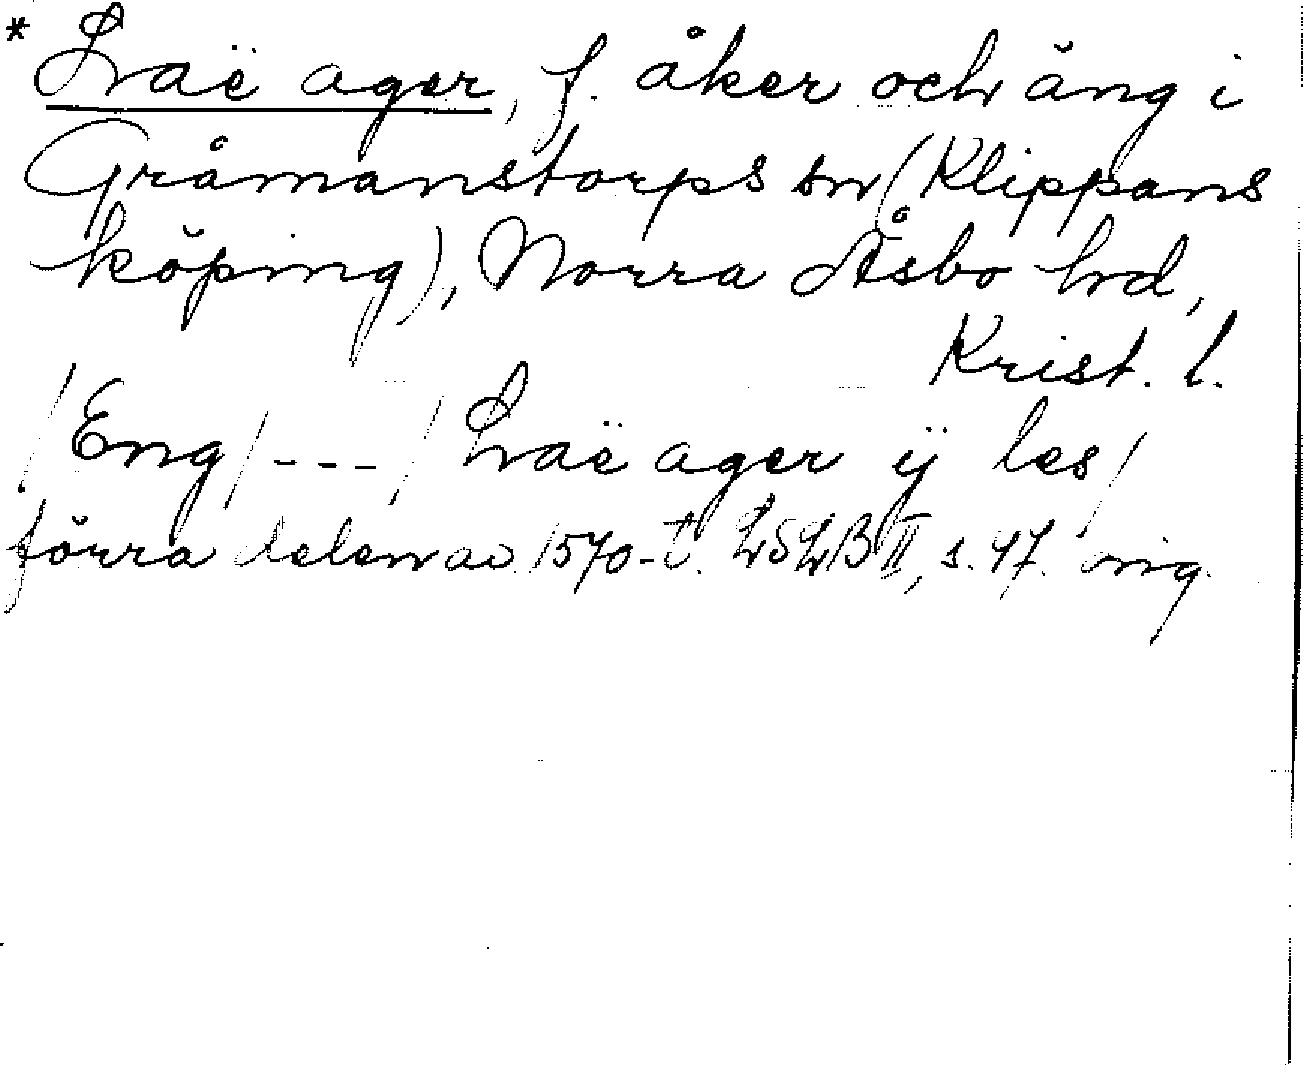 * Laë ager, f. åker och äng i
Gråmanstorps sn (Klippans
köping), Norra Åsbo hd,
Krist. l.
/Eng/ --- / Laë ager ÿ les/
förra delen av 1570-t. LSLB II, s. 47. orig.